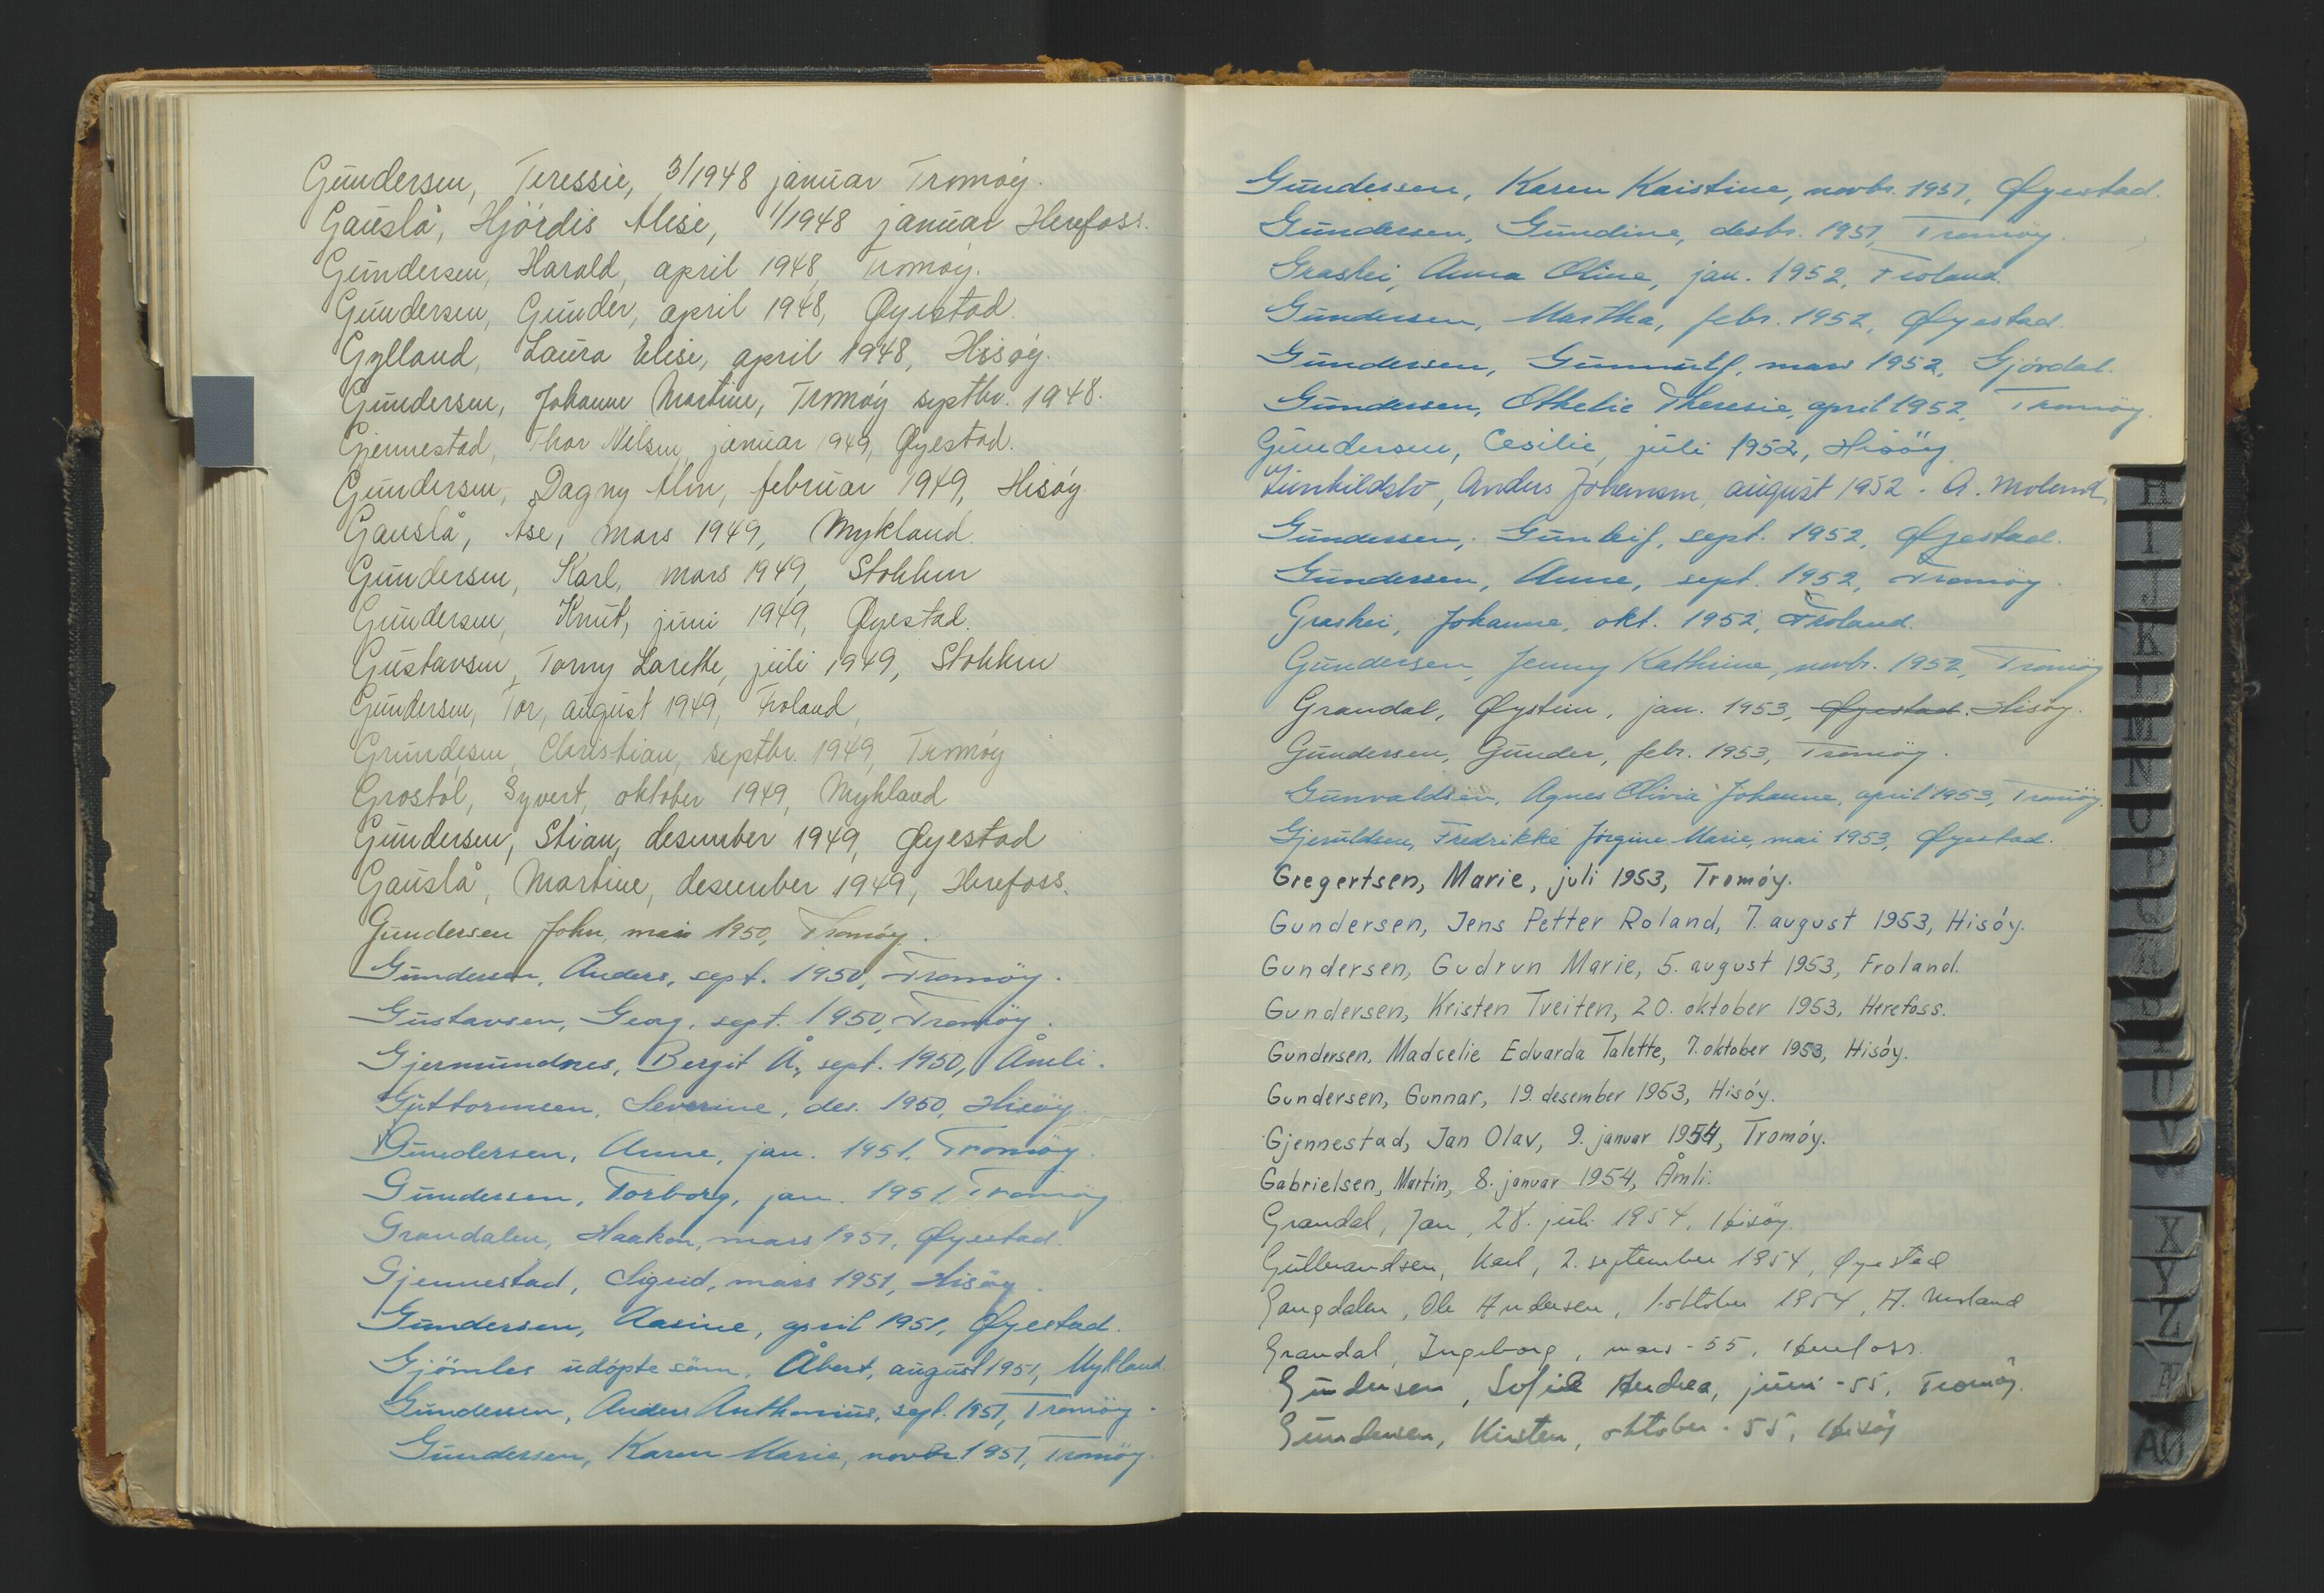 Gundersen, Teressie, 3/1948 januar Tromøy.
Gauslå, Hjördis Alise, 1/1948 januar Herefoss.
Gundersen, Harald, april 1948, Tromøy.
Gundersen, Gunder, april 1948, Øyestad.
Gylland, Laura Elise, april 1948, Hisøy.
Gundersen, Johanne Martine, Tromøy septbr. 1948.
Gjennestad, Thor Nilsen, januar 1949, Øyestad.
Gundersen, Dagny Alm, februar 1949, Hisøy
Gauslå, Åse, mars 1949, Mykland.
Gundersen, Karl, mars 1949, Stokken
Gundersen, Knut, juni 1949, Øyestad.
Gustavsen, Tomy Larette, juli 1949, Stokken
Gundersen, Tor, august 1949, Froland,
Grundesen, Christian, septbr. 1949, Tromøy
Grostøl, Syvert, oktober 1949, Mykland
Gundersen, Stian, desember 1949, Øyestad
Gauslå, Martine, desember 1949, Herefoss.
Gundersen John, mai 1950, Tromøy.
Gundersen, Anders, sept. 1950, Tromöy.
Gustavsen, Georg, sept. 1950, Tromöy.
Gjermundnes, Bergit Å., sept. 1950, Åmli.
Guttormsen, Severine, des. 1950, Hisöy.
Gundersen, Anne, jan. 1951, Tromöy.
Gundersen, Torborg, jan. 1951, Tromöy
Grandalen, Haakon, mars 1951, Øyestad.
Gjennestad, Sigrid, mars 1951, Hisöy.
Gundersen, Aasine, april 1951, Øyestad.
Gjömles udöpte sönn, Åbert, august 1951, Mykland
Gundersen, Anders Anthonius, sept. 1951, Tromöy.
Gundersen, Karen Marie, novbr. 1951, Tromöy.
Gundersen, Karen Kristine, novbr. 1951, Øyestad.
Gundersen, Gundine, desbr. 1951, Tromöy.
Grashei, Anna Oline, jan. 1952, Froland.
Gundersen, Martha, febr. 1952, Øyestad.
Gundersen, Gunnulf, mars 1952, Gjövdal.
Gundersen, Othelie Theresie, april 1952, Tromöy.
Gundersen, Cesilie, juli 1952, Hisöy.
Anders Johansen, august 1952. A. Moland,
Gundersen, Gunleif, sept. 1952, Øyestad.
Gundersen, Anne, sept. 1952, Tromöy.
Grashei, Johanne, okt. 1952, Froland.
Gundersen, Jenny Kathrine, novbr. 1952, Tromöy
Grandal, Øystein, jan. 1953, Øyestad. Hisøy.
Gundersen, Gunder, febr. 1953, Tromöy.
Gunvaldsen, Agnes Olivia Johanne, april 1953, Tromöy.
Gjeruldsen, Fredrikke Jörgine Marie, mai 1953, Øyestad.
Gregertsen, Marie, juli 1953, Tromöy.
Gundersen, Jens Petter Roland, 7. august 1953, Hisóy.
Gundersen, Gudrun Marie, 5. august 1953, Froland.
Gundersen, Kristen Tveiten, 20. oktober 1953, Herefoss.
Gundersen, Madcelie Edvarda Talette, 7. oktober 1953, Hisóy.
Gundersen, Gunnar, 19. desember 1953, Hisóy.
Gjennestad, Jan Olav, 9. januar 1954, Tromóy.
Gabrielsen, Martin, 8. januar 1954, Åmli.
Grandal, Jan, 28. juli 1954, Hisöy.
Gulbrandsen, Karl, 2. september 1954, Øyestad
Gangdalen, Ole Andersen, 1. oktober 1954, A. Moland
Grandal, Ingeborg, mars -55, Herefoss.
Gundersen, Sofie Andrea, juni -55, Tromöy.
Gundersen, Kirsten, oktober -55, Hisöy
H
I
J
K
L
M
N
O
P
Q
R
S
T
U
V
X
Y
Z
Æ
AØ